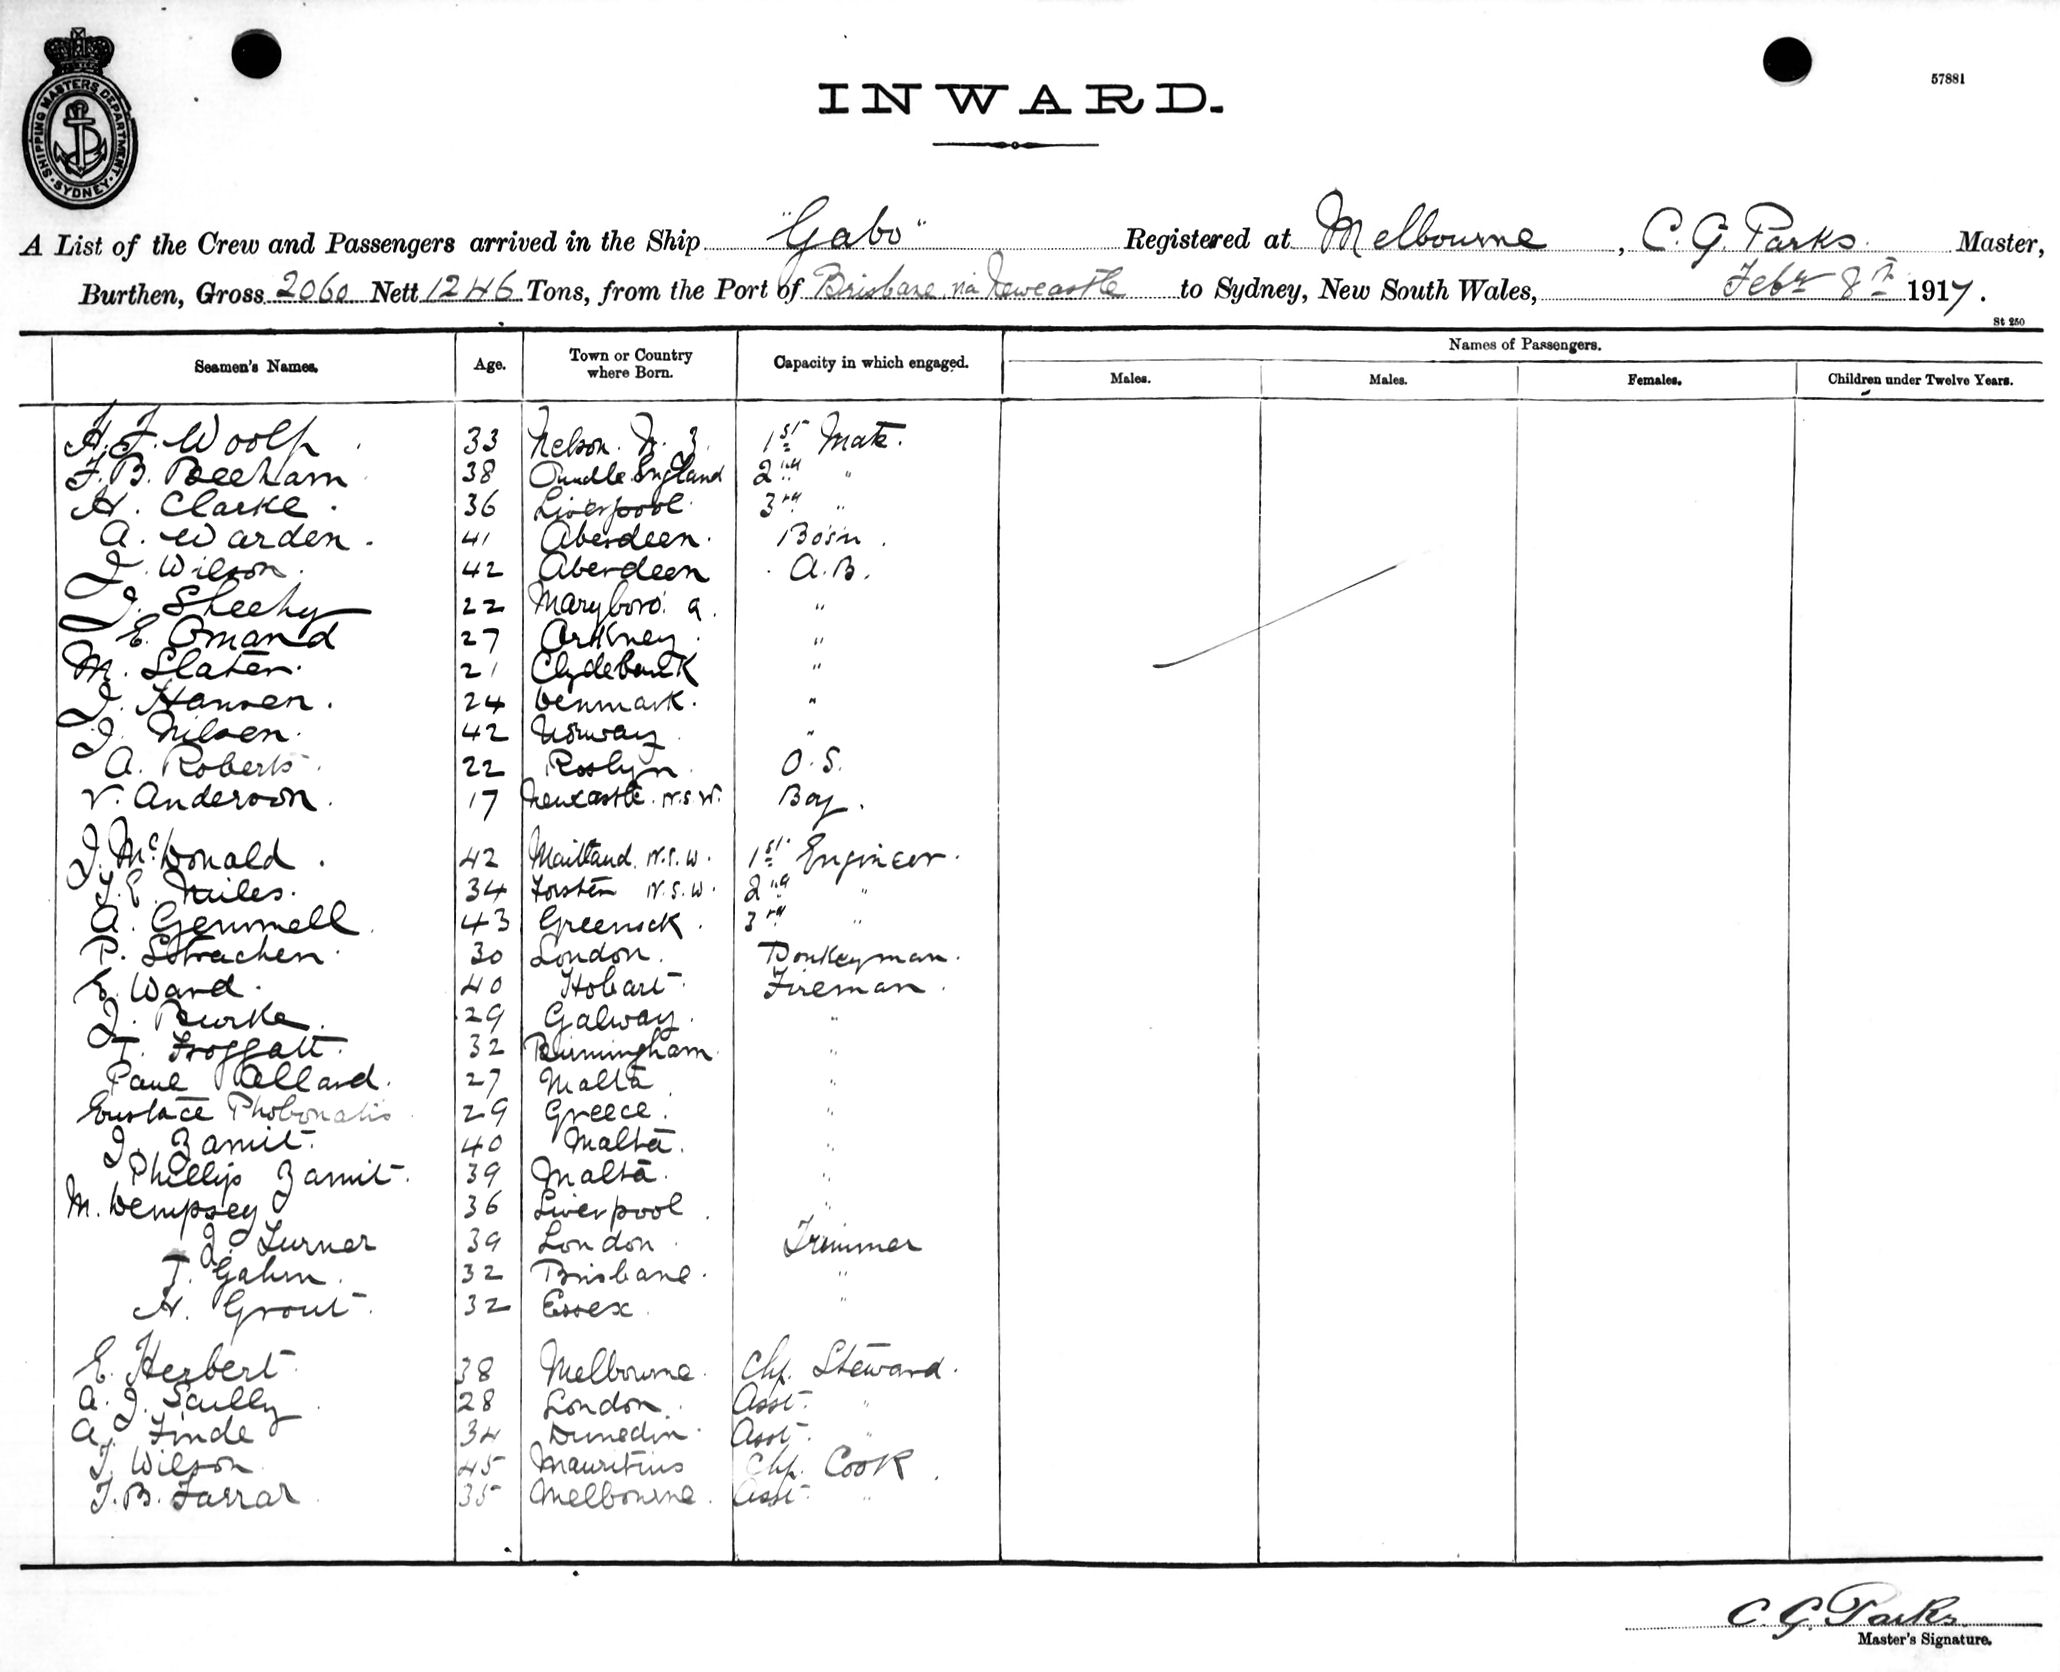 SHIPPING MASTERS DEPARTMENT · SYDNEY ·
57881
INWARD.
A List of the Crew and Passengers arrived in the Ship "Gabo" Registered at Melbourne, C. G. Parks. Master,
Burthen, Gross 2060 Nett 1246 Tons, from the Port of Brisbane via Newcastle to Sydney, New South Wales, Febr 8th 1917.
St 250
Seamen's Names. Age. Town or Country where Born. Capacity in which engaged. Names of Passengers.
Males. Males. Females. Children under Twelve Years.
H. J. Woolf 33 Nelson. N. Z. 1st Mate.
F. B. Beeham 38 Oundle England 2nd "
H. Clarke. 36 Liverpool. 3rd "
A. Warden. 41 Aberdeen. Bosn.
J. Wilson. 42 Aberdeen A.B.
J. Sheehy 22 Maryboro. Q. "
E. Omand 27 Orkney. "
M. Slater. 21 Clydebank "
J. Hansen. 24 Denmark. "
J. Nilsen. 42 Norway. "
A. Roberts. 22 Roslyn. O.S.
V. Anderson. 17 Newcastle. N.S.W. Boy.
J. McDonald. 42 Maitland. N.S.W. 1st Engineer.
J. E. Miles. 34 N.S.W. 2nd "
A. Gemmell 43 Greenock. 3rd "
P. Strachen. 30 London. Donkeyman.
E. Ward. 40 Hobart. Fireman.
J. Burke. 29 Galway. "
T. Froggatt. 32 Birmingham. "
Paul Allard. 27 Malta "
Eustace 29 Greece. "
J. Zamit. 40 Malta. "
Phillip Zamit. 39 Malta. "
M. Dempsey 36 Liverpool. "
J. Turner 39 London. Trimmer
T. Gahen. 32 Brisbane. "
H. Grout. 32 Essex. "
E. Herbert. 38 Melbourne. Chf. Steward.
A. J. Scully. 28 London. Asst. "
A. Finde 34 Dunedin. Asst. "
J. Wilson. 45 Mauritius Chf. Cook.
J. B. Farrar. 35 Melbourne. Asst. "
C. G. Parks.
Master's Signature.